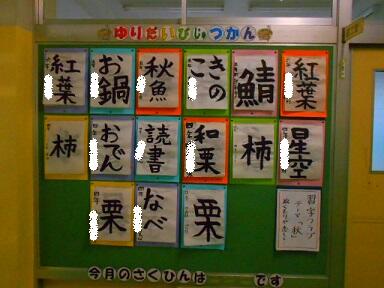 ゆりだいびじゅつかん
紅葉
お鍋
秋魚
きのこ
鯖
紅葉
柿
おでん
読書
和栗
柿
星空
栗
なべ
栗
習字クラブ
テーマ「秋」
今月のさくひんは
です